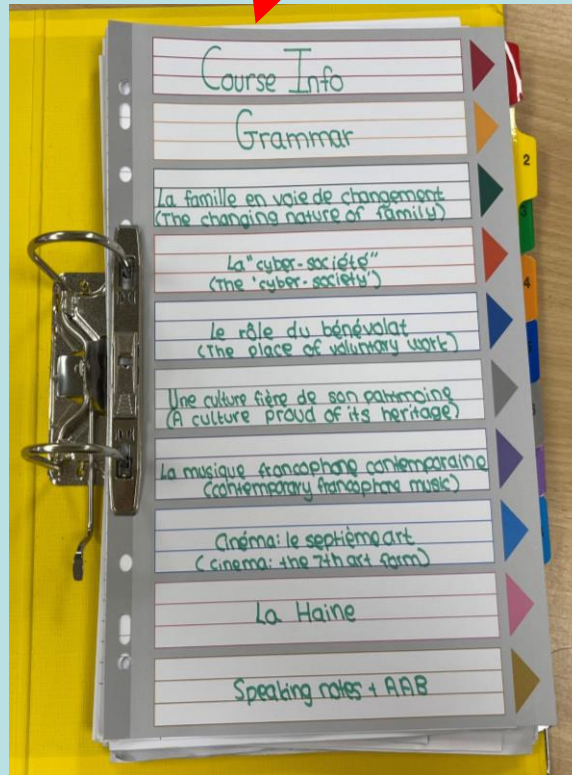 Course Info
Grammar
La famille en voie de changement
(The changing nature of family)
La "cyber-société"
(The 'cyber-society')
Le rôle du bénévolat
(The place of voluntary work)
Une culture fière de son patrimoine
(A culture proud of its heritage)
La musique francophone contemporaine
(contemporary francophone music)
Cinéma: le septième art
(cinema: the 7th art form)
La Haine
Speaking notes + AAB
2
3
4